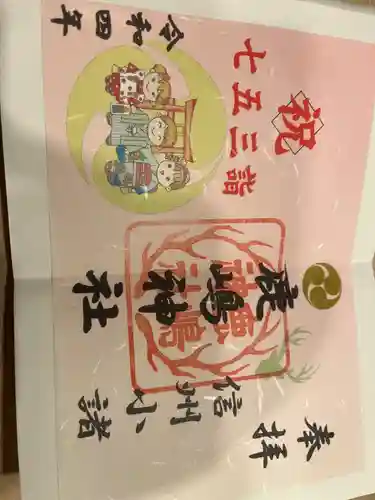 奉拝
信州小諸
鹿嶋神社
祝
七五三詣
令和四年